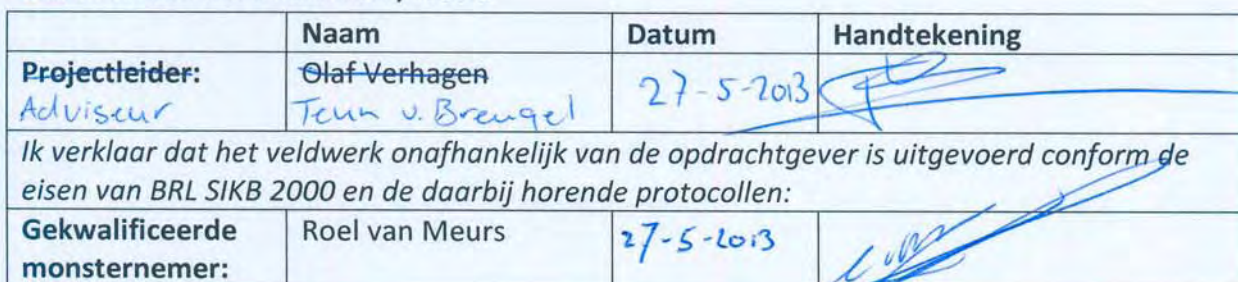 Naam Datum Handtekening
Projectleider: Olaf Verhagen
Adviseur Teun v. Brengel 27-5-2013
Ik verklaar dat het veldwerk onafhankelijk van de opdrachtgever is uitgevoerd conform de
eisen van BRL SIKB 2000 en de daarbij horende protocollen:
Gekwalificeerde Roel van Meurs 27-5-2013
monsternemer: